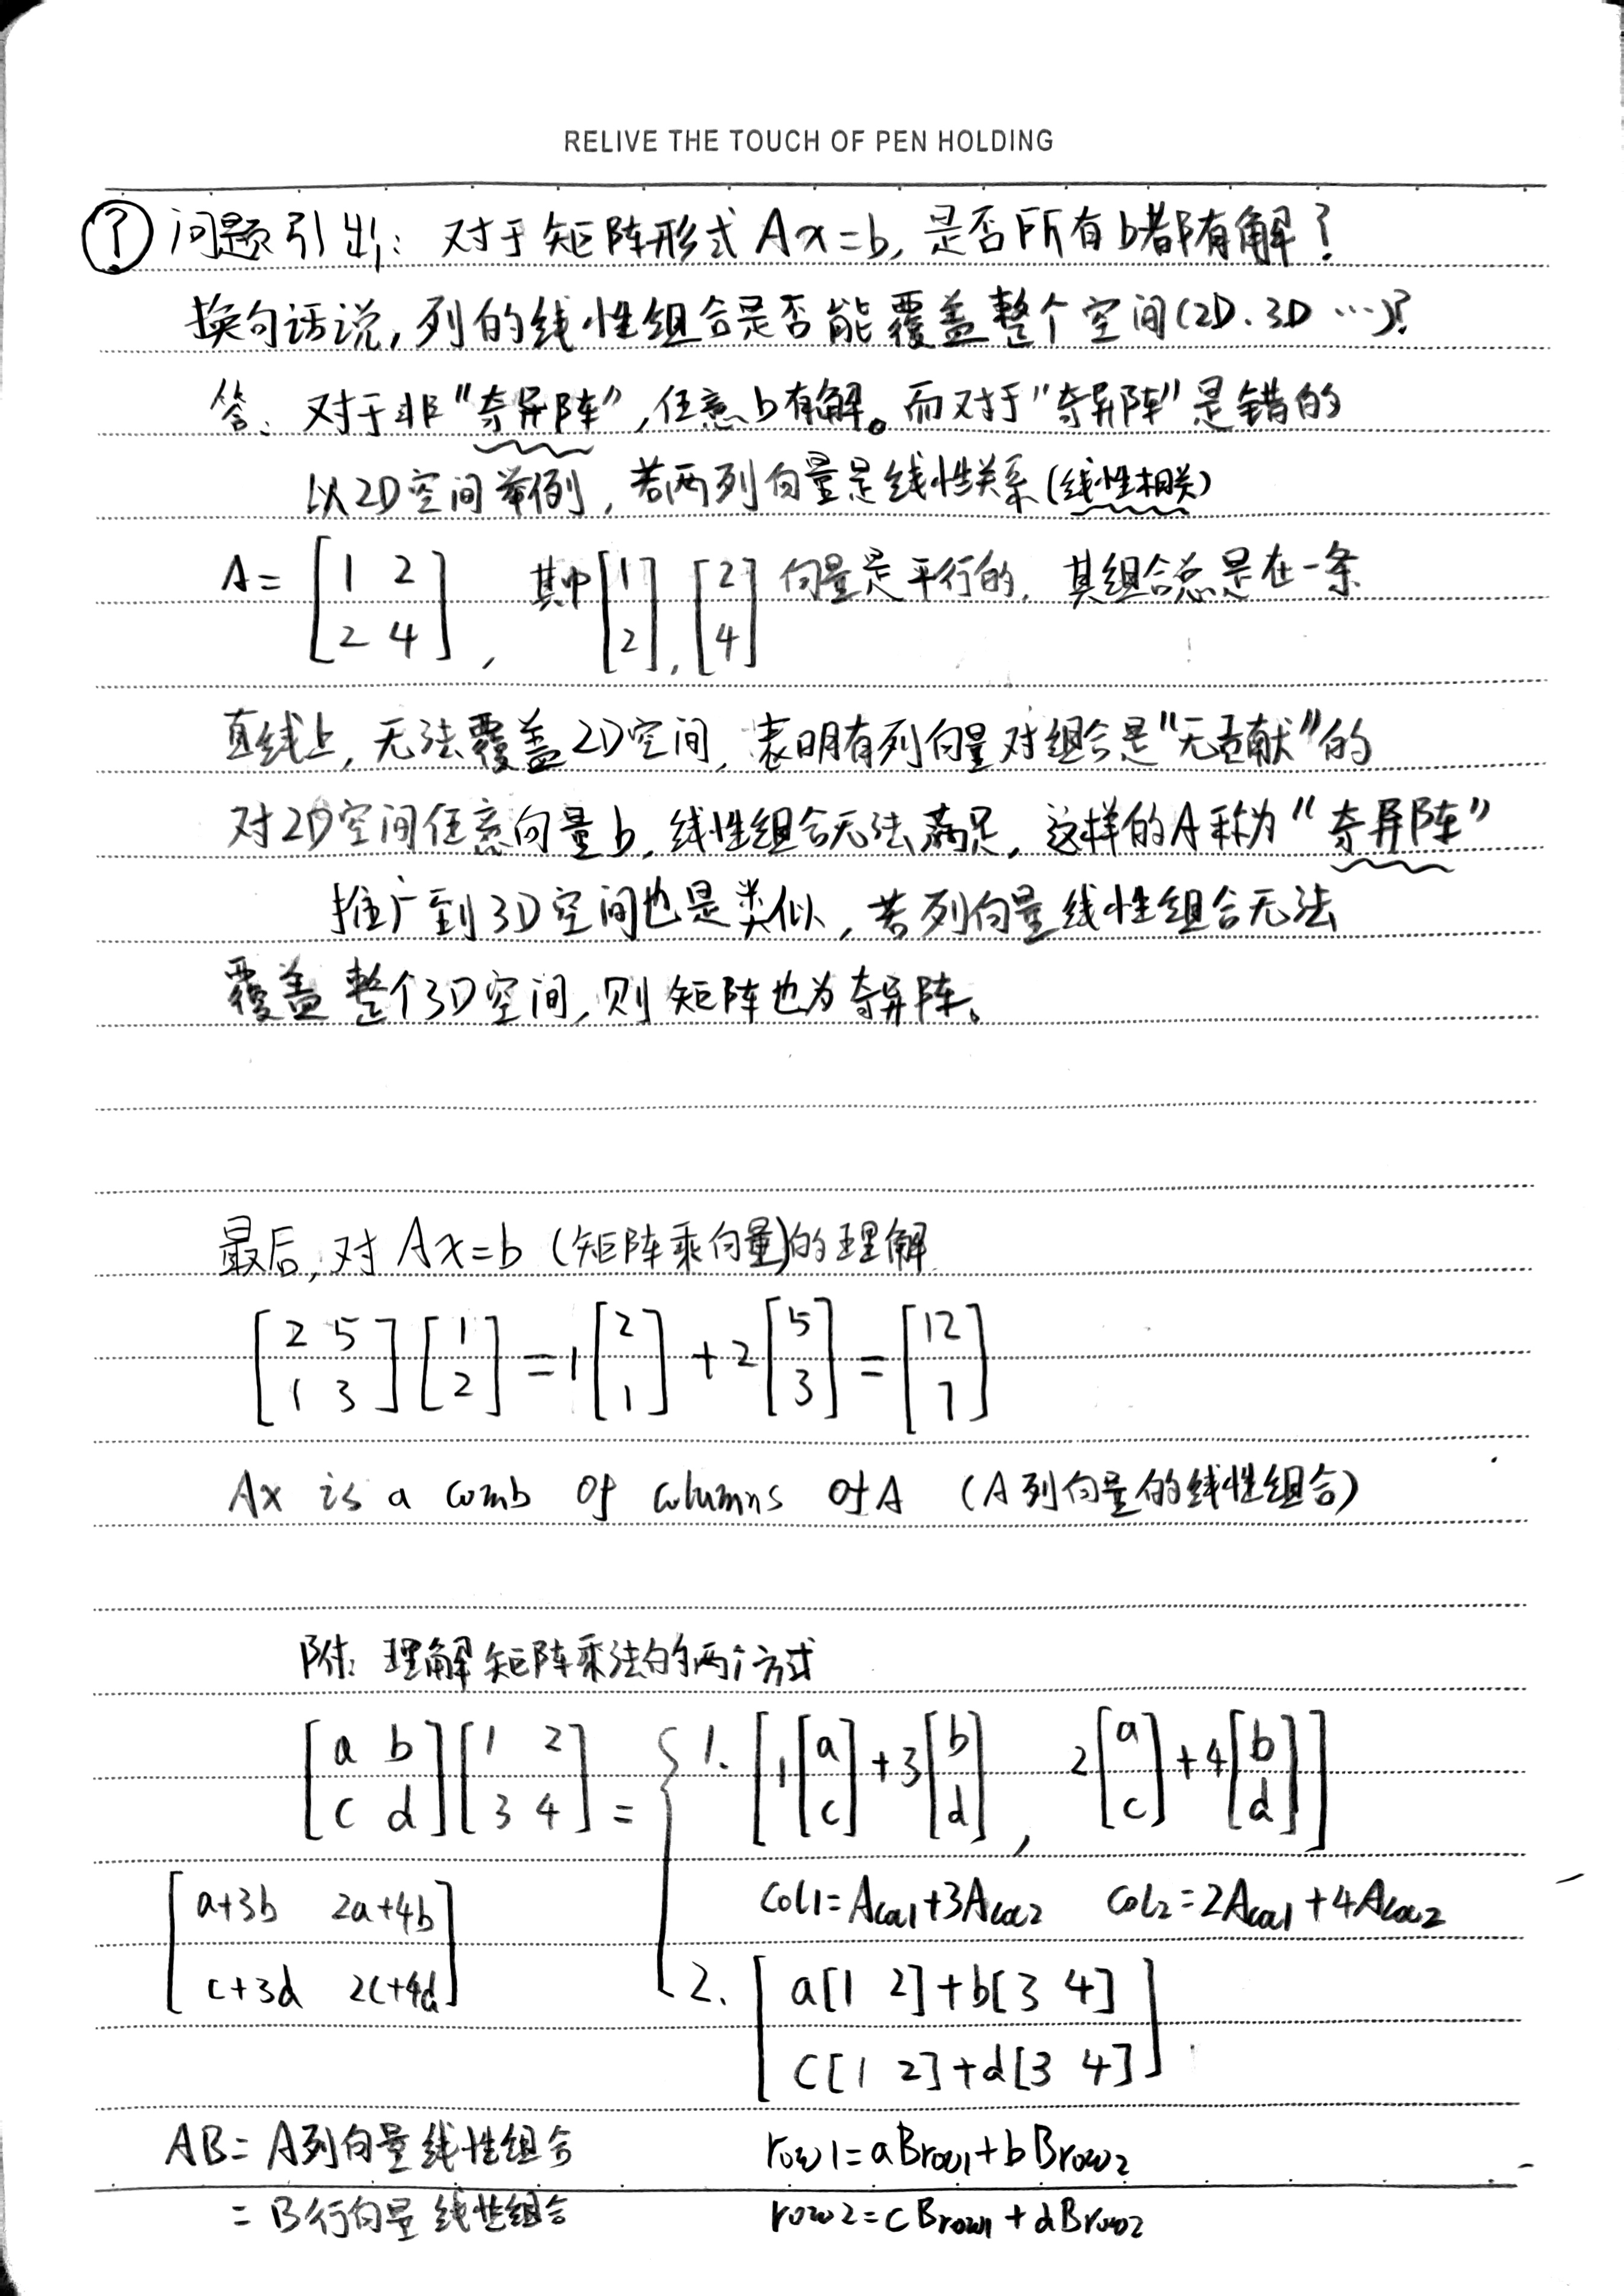 RELIVE THE TOUCH OF PEN HOLDING
? 问题引出: 对于矩阵形式 Ax=b, 是否所有b都有解?
换句话说, 列的线性组合是否能覆盖整个空间(2D、3D …)?
答: 对于非"奇异阵", 任意b有解。而对于"奇异阵"是错的
以2D空间举例, 若两列向量是线性关系(线性相关)
A = [1 2; 2 4], 其中 [1; 2], [2; 4] 向量是平行的, 其组合总是在一条
直线上, 无法覆盖2D空间, 表明有列向量对组合是"无贡献"的
对2D空间任意向量b, 线性组合无法满足, 这样的A称为"奇异阵"
推广到3D空间也是类似, 若列向量线性组合无法
覆盖整个3D空间, 则矩阵也为奇异阵。
最后, 对Ax=b (矩阵乘向量)的理解
[2 5; 1 3] [1; 2] = 1 [2; 1] + 2 [5; 3] = [12; 7]
Ax is a comb of columns of A (A列向量的线性组合)
附: 理解矩阵乘法的两个方式
[a b; c d] [1 2; 3 4] = { 1. [1 [a; c] + 3 [b; d], 2 [a; c] + 4 [b; d]]
[a+3b 2a+4b; c+3d 2c+4d]
col1=Acol1+3Acol2 col2=2Acol1+4Acol2
2. [a[1 2]+b[3 4]; c[1 2]+d[3 4]]
AB= A列向量线性组合
= B行向量线性组合
row1=aBrow1+bBrow2
row2=cBrow1+dBrow2